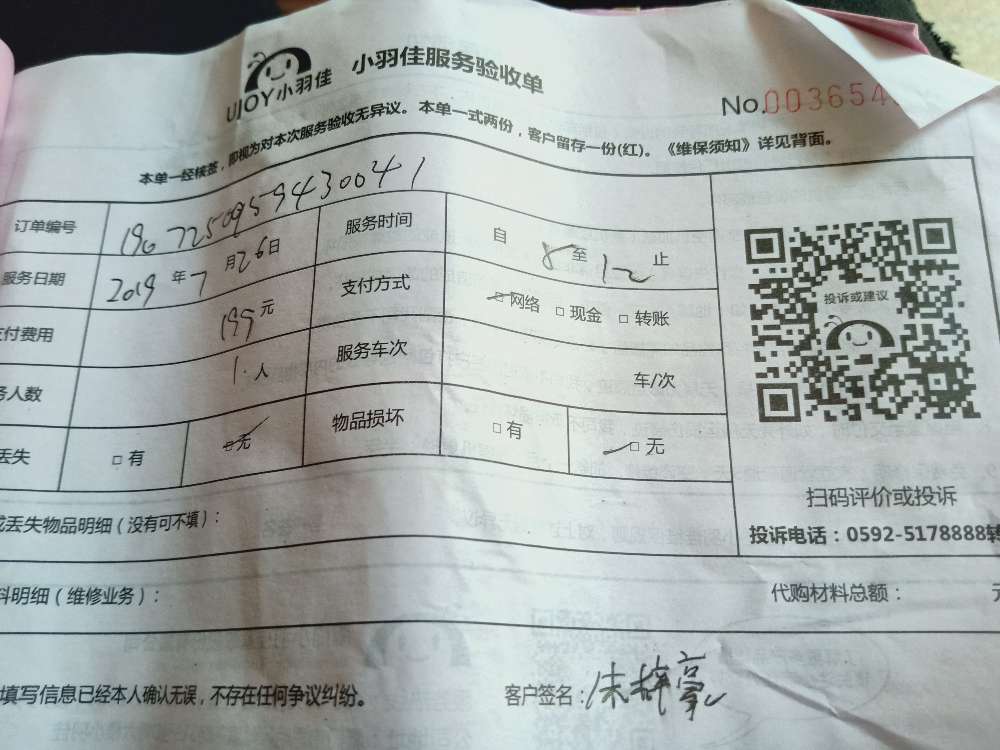 UJOY小羽佳 小羽佳服务验收单
No.003654
本单一经核签，即视为对本次服务验收无异议。本单一式两份，客户留存一份(红)。《维保须知》详见背面。
订单编号 1907250959430041
服务时间 自 8 至 12 止
服务日期 2019 年 7 月 26 日
支付方式 □网络 □现金 □转账
付费用 199 元
服务车次 车/次
人数 1 人
物品损坏 □有 □无
丢失 □有 □无
投诉或建议
扫码评价或投诉
投诉电话：0592-5178888转
丢失物品明细（没有可不填）：
料明细（维修业务）：
代购材料总额：
填写信息已经本人确认无误，不存在任何争议纠纷。
客户签名：